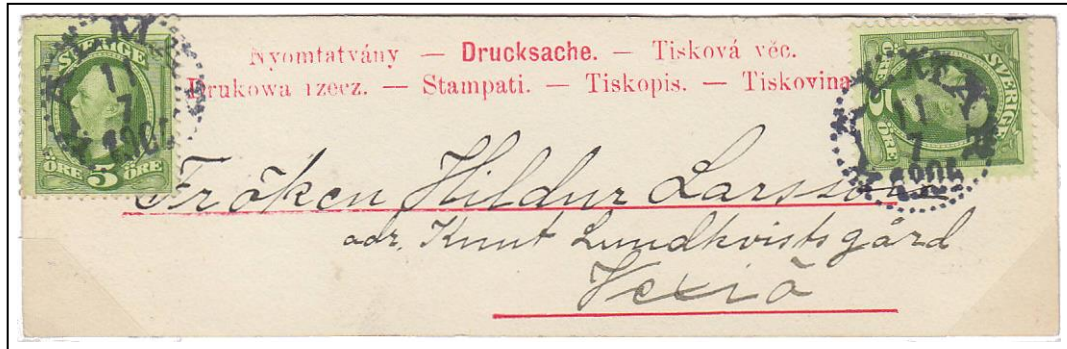 SVERIGE
5
ÖRE ÖRE
11
7
Nyomtatvány — Drucksache. — Tisková věc.
Drukowa rzecz. — Stampati. — Tiskopis. — Tiskovina
SVERIGE
5
ÖRE
11
7
Fröken Hildur Larsson
adr. Knut Lundkvistsgård
Vexiö